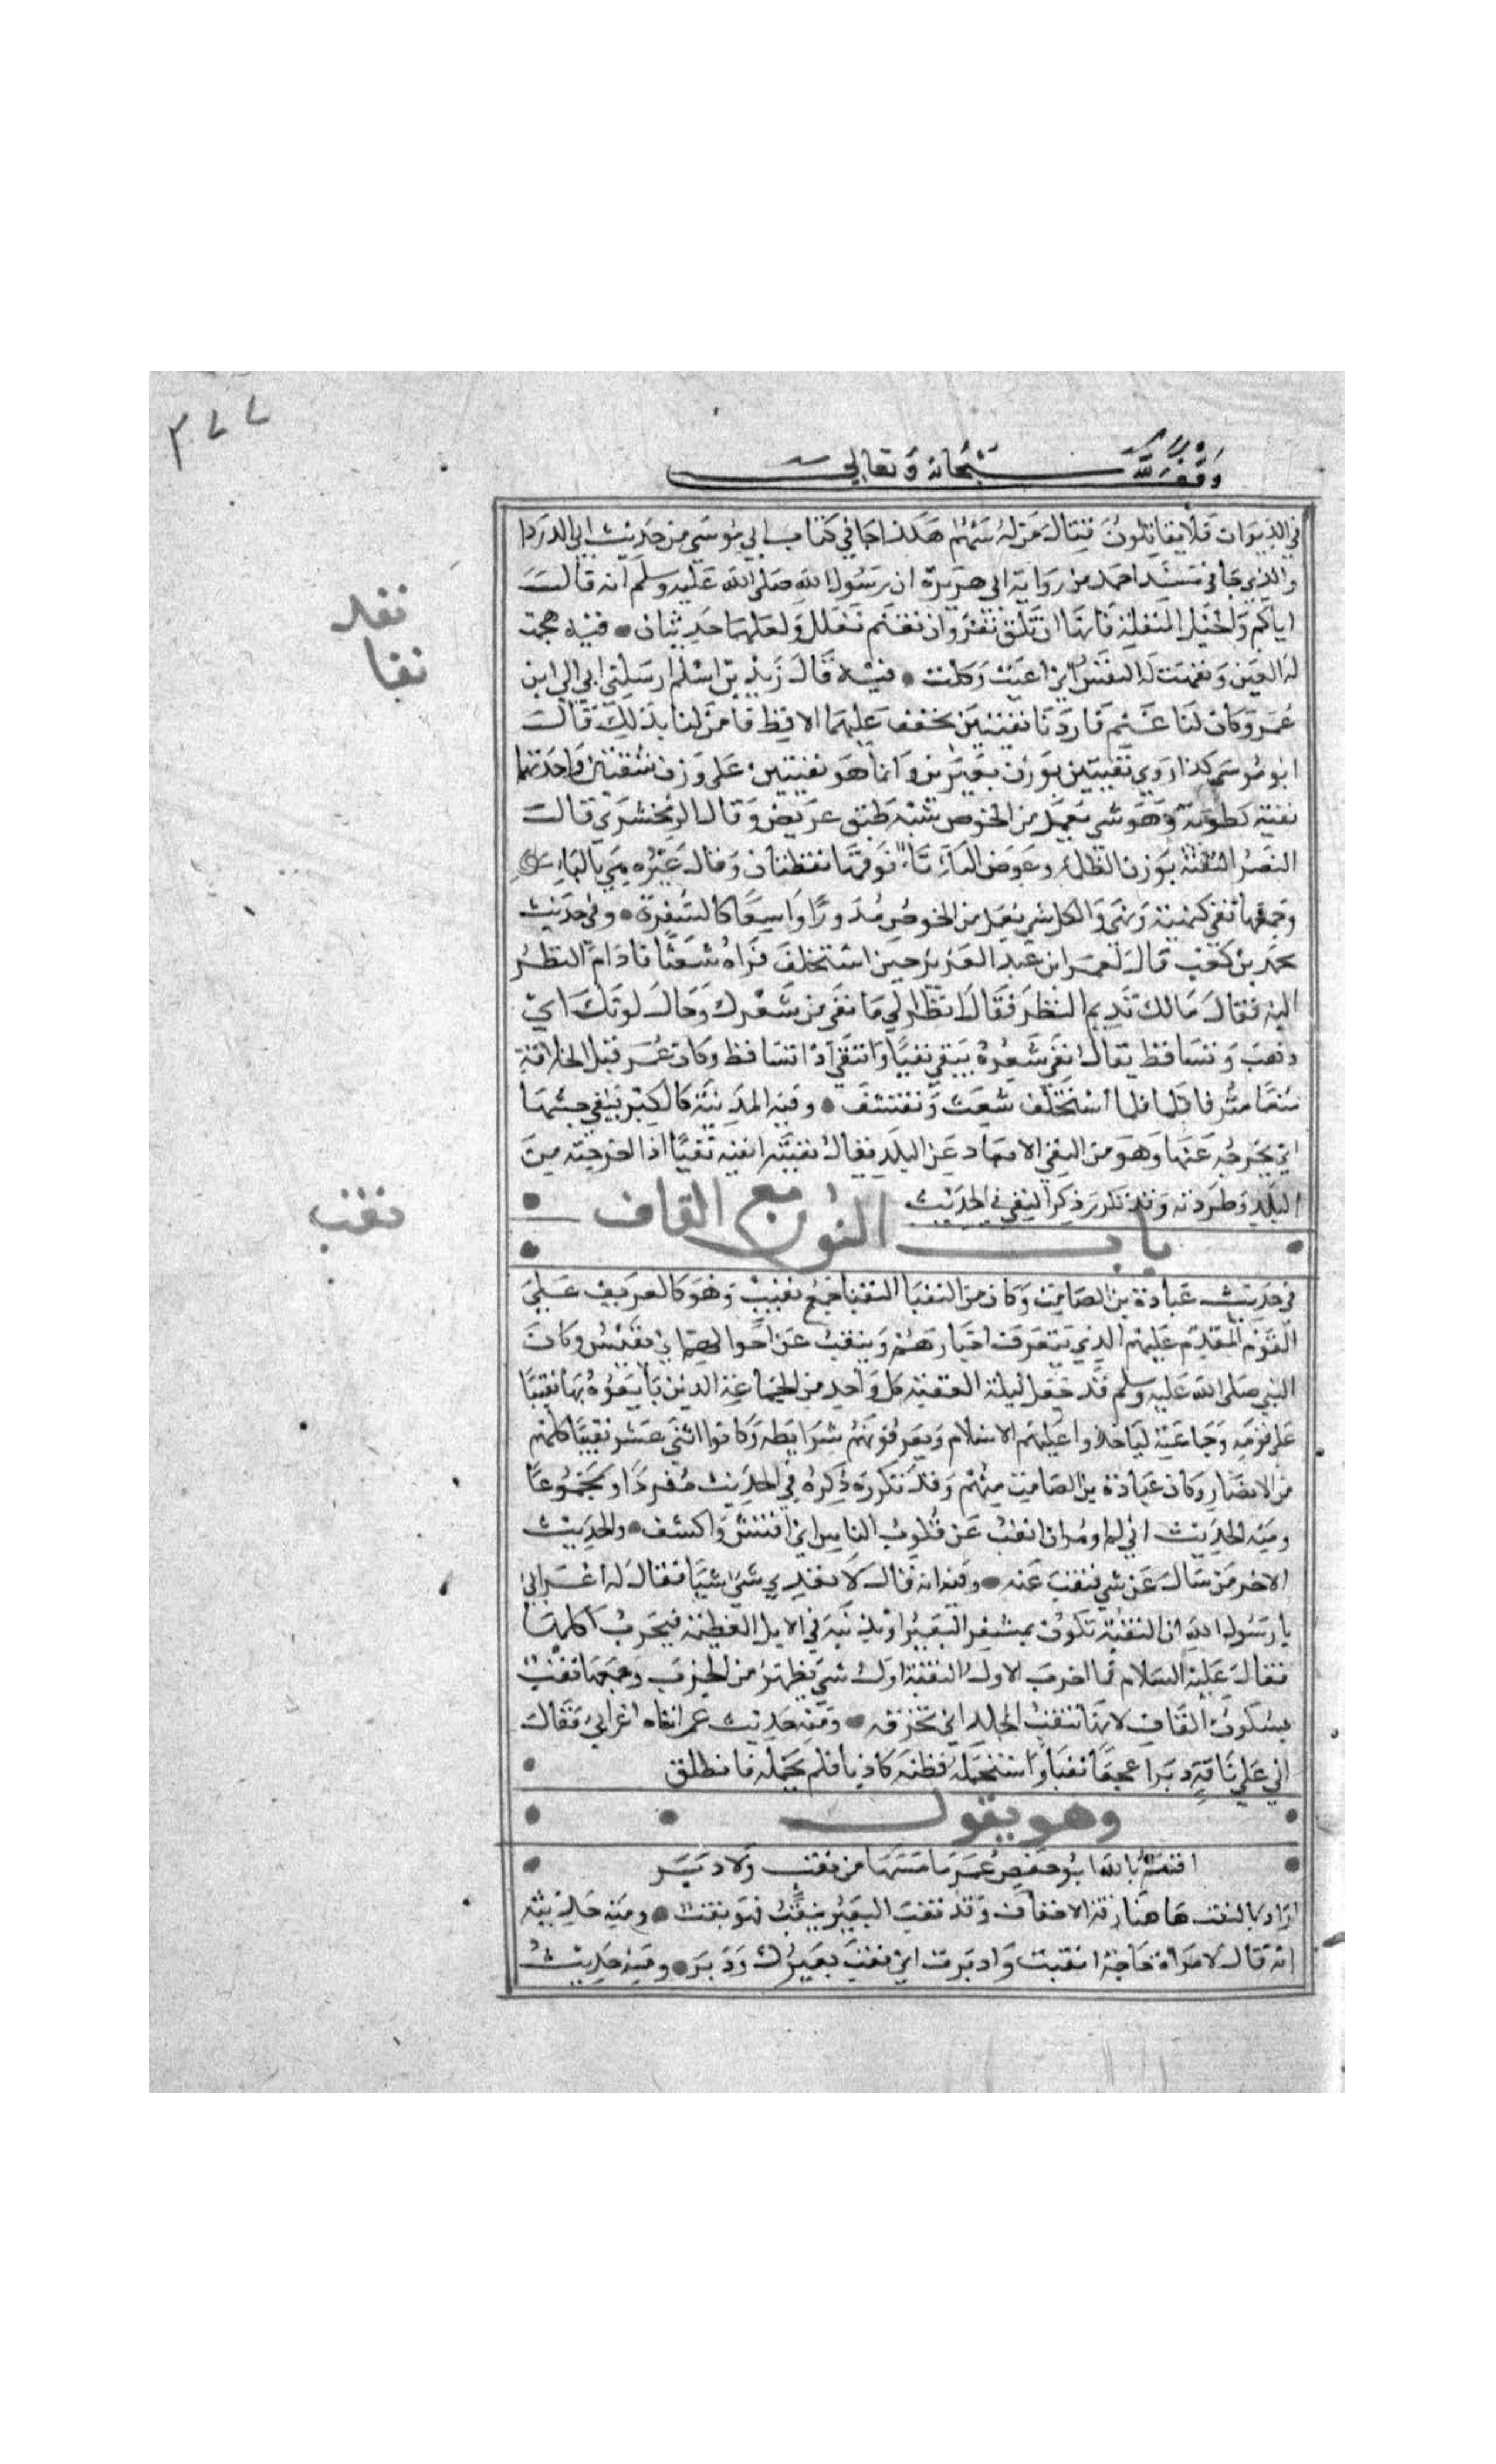 ٣٧٧
وقف لله سبحانه وتعالى
في الديوان فلا يقاتلون قتال من له سهم هكذا جا في كتاب ابي موسى من حديث ابي الدردا
والذي جا في مسند احمد من رواية ابي هريرة ان رسول الله صلى الله عليه وسلم انه قالـ
اياكم والخيل النفلة فانها ان تلق تفر وان تغنم تغلل ولعلهما حديثان • فيه هجمت
نفله
له العين ونفهت له النفس اي اعيت وكلت • فيه قال زيد بن اسلم ارسلني ابي الى ابن
نفا
عمر وكان لنا غنم فاردنا نفيتين نجفف عليهما الاقط فامر لنا بذلك قالـ
ابو موسى كذا روي نفيتين بوزن بعيرين وانما هو نفيتين على وزن شقيتين واحدتهما
نفية كطوية وهو شي يعمل من الخوص شبه طبق عريض وقال الزمخشري قالـ
النضر النفتة بوزن الظلمة وعوض الياء تاء فوقها نقطتان وقال غيره هي بالياء
وجمعها نفى كنهية ونهى والكل شي يعمل من الخوص مدورا واسعا كالسفرة • وفي حديث
محمد بن كعب قال لعمر ابن عبد العزيز حين استخلف فراه شعثا فادام النظر
اليه فقال مالك تديم النظر فقال انظر الى ما نفى من شعرك وحال لونك اي
ذهب وتساقط يقال نفى شعره ينفي نفيا وانتفى اذا تساقط وكان عمر قبل الخلافة
منعما مترفا فلما استخلف شعث وتقشف • وفيه المدينة كالكير تنفي خبثها
اي تخرجه عنها وهو من النفي الابعاد عن البلد يقال نفيته انفيه نفيا اذا اخرجته من
البلد وطردته وقد تكرر ذكر النفي في الحديث
باب النون مع القاف
نقب
في حديث عبادة بن الصامت وكان من النقبا النقبا جمع نقيب وهو كالعريف على
القوم المقدم عليهم الذي يتعرف اخبارهم وينقب عن احوالهم اي يفتش وكان
النبي صلى الله عليه وسلم قد جعل ليلة العقبة كل واحد من الجماعة الذين بايعوه بها نقيبا
على قومه وجماعته لياخذوا عليهم الاسلام ويعرفونهم شرايطه وكانوا اثني عشر نقيبا كلهم
من الانصار وكان عبادة بن الصامت منهم وقد تكرره ذكره في الحديث مفردا ومجموعا
ومنه الحديث اني لم اومر ان انقب عن قلوب الناس اي افتش واكشف • والحديث
الاخر من سال عن شي فنقب عنه • وفيه انه قال لا يعدي شي شيا فقال له اعرابي
يا رسول الله ان النقبة تكون بمشفر البعير او بذنبه في الابل العظيمة فتجرب كلها
فقال عليه السلام فما اجرب الاول النقبة اول شي يظهر من الجرب وجمعها نقب
بسكون القاف لانها تنقب الجلد اي تخرقه • ومنه حديث عمر اتاه اعرابي فقال
اني على ناقة دبرا عجفا نقبا واستحمله فظنه كاذبا فلم يحمله فانطلق
وهو يقول
اقسم بالله ابو حفص عمر ما مسها من نقب ولا دبر
اراد بالنقب هاهنا رقة الاخفاف وقد نقب البعير ينقب فهو نقب • ومنه حديثه
انه قال لامراة حاجة انقبت وادبرت اي نقب بعيرك ودبر • ومنه حديث